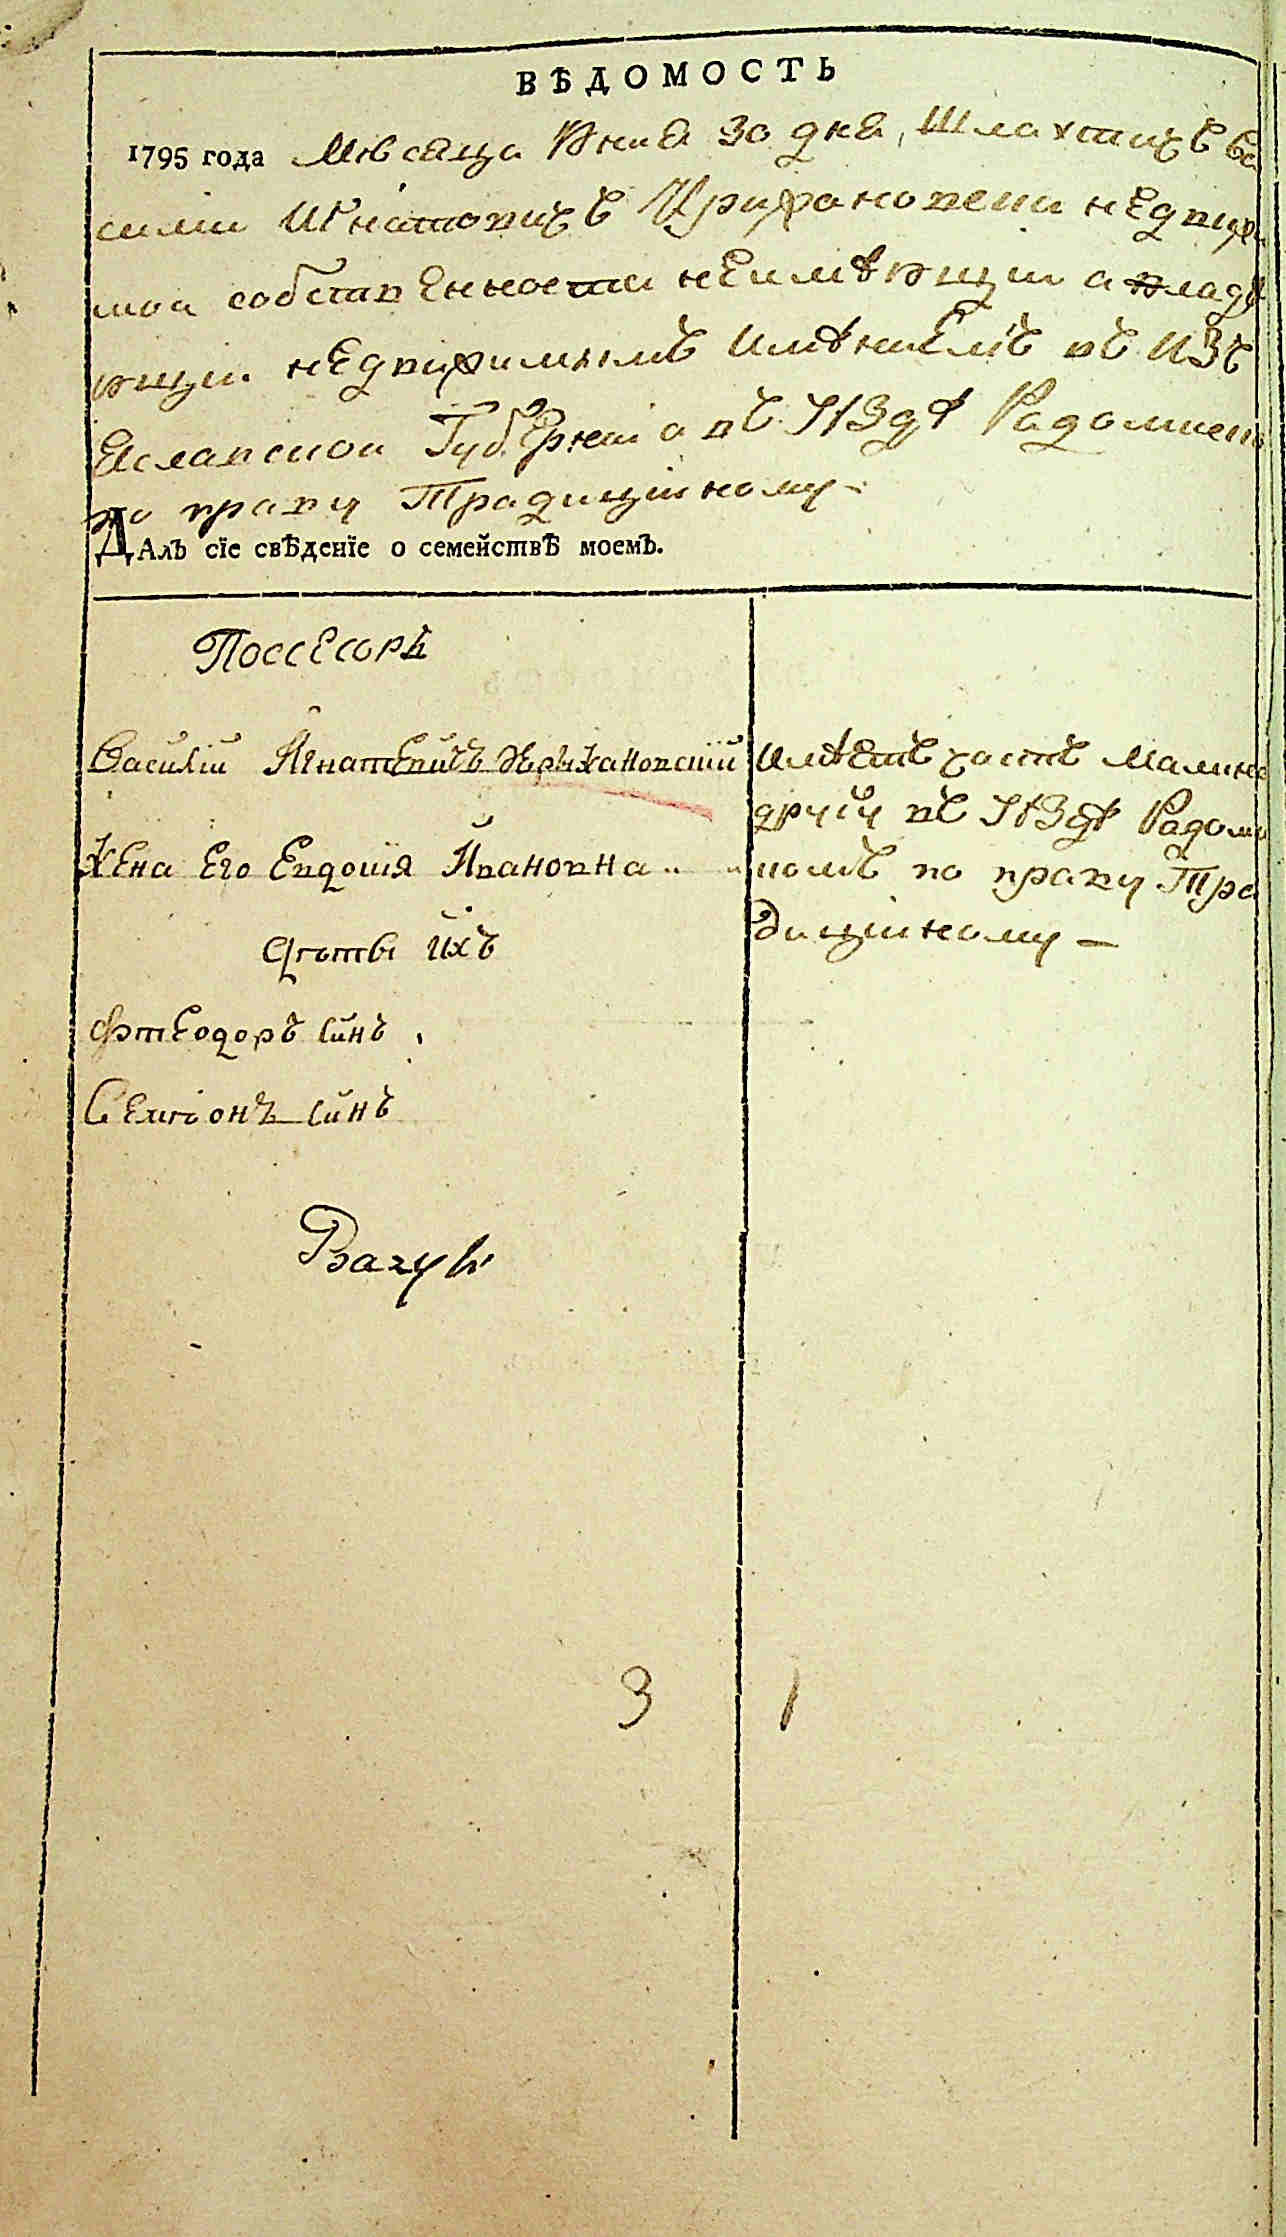 ВѢДОМОСТЬ
1795 года Мѣсяца Июня 30 дня, Шляхтичъ Ва
силии Игнатовичъ Крижановски недвижи
мои собственности неимѣющии а владѣ
ющии недвижимымъ имѣниемъ въ Изъ
Яславскои Губернии а въ Уездѣ Радомыс
по праву Традицииному
ДАлъ сїе свѢденїе о семействѢ моемЪ.
Поссесоръ
Василій Игнатевичъ Крыжановскій
Жена Его Евдокія Йвановна
Дѣтьи ихъ
Фтеодоръ синъ
Семионъ синъ
имѣетъ часть Малино
въ Уездѣ Радомы
комъ по праву Тра
дицииному
3 1